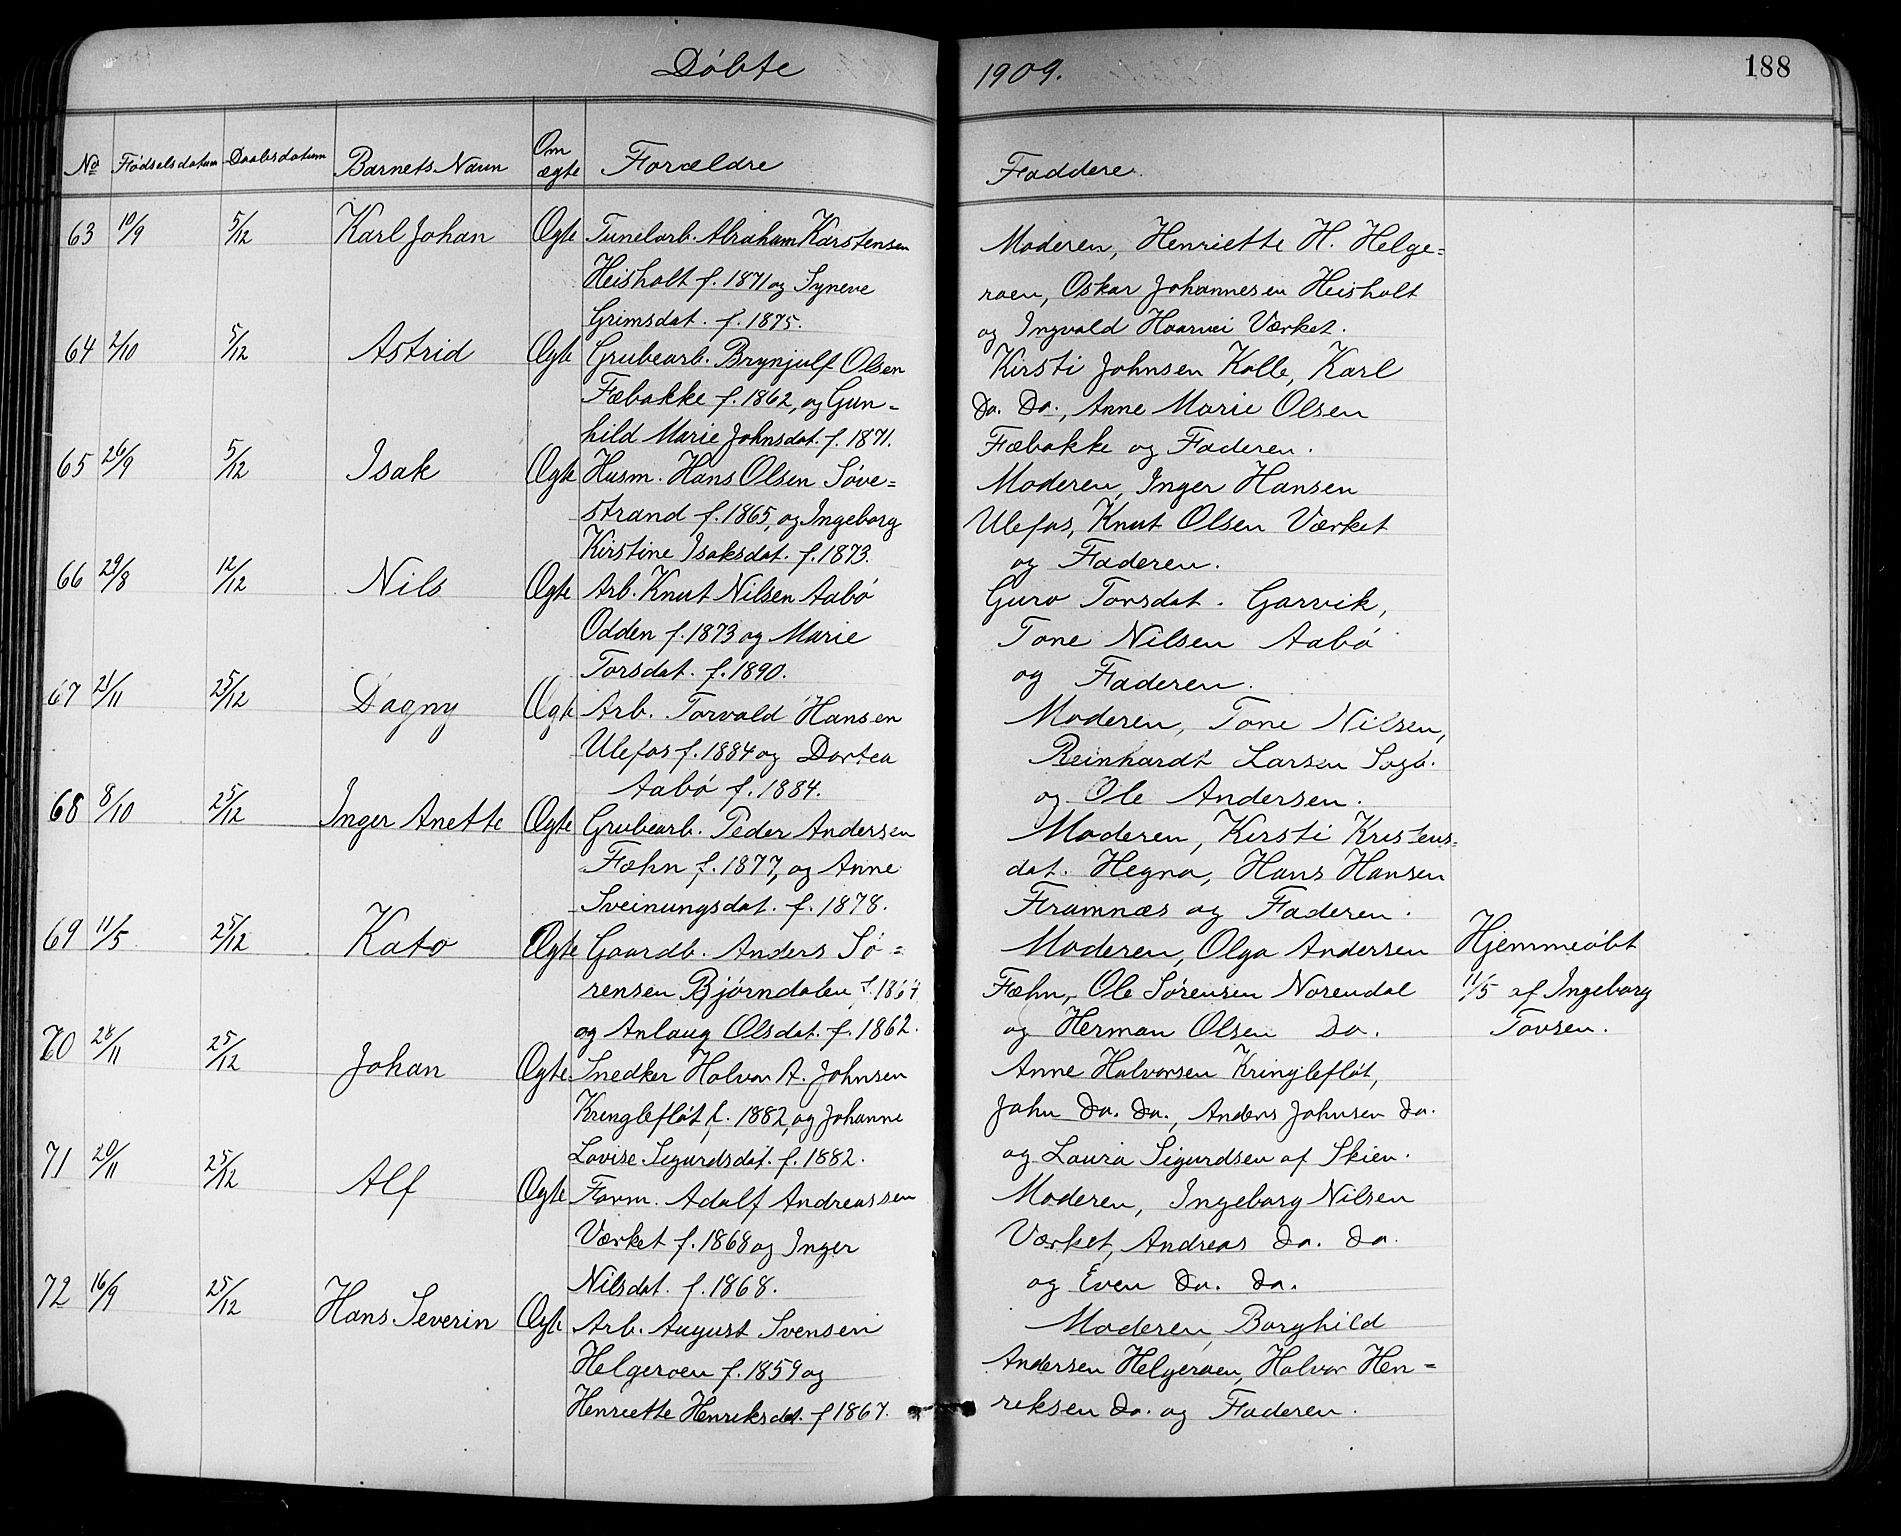 Døbte
1909.
188
No Fødselsdatum Daabsdatum Barnets Navn Om ægte Forældre
Faddere.
63 10/9 5/12 Karl Johan Ægte Tunelarb. Abraham Karstensen
Heisholt f. 1871 og Syneve
Grimsdat. f. 1875.
Moderen, Henriette H. Helge=
roen, Oskar Johannesen Heisholt
og Ingvald Haarvei Værket.
64 2/10 5/12 Astrid Ægte Grubearb. Brynjulf Olsen
Fæbakke f. 1862, og Gun=
hild Marie Johnsdat. f. 1871.
Kirsti Johnsen Kolle, Karl
Do. Do., Anne Marie Olsen
Fæbakke og Faderen.
65 26/9 5/12 Isak Ægte Husm. Hans Olsen Søve=
strand f. 1865, og Ingeborg
Kirstine Isaksdat. f. 1873.
Moderen, Inger Hansen
Ulefos, Knut Olsen Værket
og Faderen.
66 29/8 12/12 Nils Ægte Arb. Knut Nilsen Aabø
Odden f. 1873 og Marie
Torsdat. f. 1890.
Guro Torsdat. Garvik,
Tone Nilsen Aabø
og Faderen.
67 21/11 25/12 Dagny Ægte Arb. Torvald Hansen
Ulefos f. 1884 og Dortea
Aabø f. 1884.
Moderen, Tone Nilsen,
Reinhardt Larsen
og Ole Andersen.
68 8/10 25/12 Inger Anette Ægte Grubearb. Peder Andersen
Fæhn f. 1877, og Anne
Sveinungsdat. f. 1878.
Moderen, Kirsti Kristens=
dat. Hegna, Hans Hansen
Framnæs og Faderen.
69 11/5 25/12 Kato Ægte Gaardb. Anders Sø=
rensen Bjørndalen f. 1864
og Anlaug Olsdat. f. 1862.
Moderen, Olga Andersen
Fæhn, Ole Sørensen Norendal
og Herman Olsen Do.
Hjemmeøbt
11/5 af Ingeborg
Tovsen.
70 28/11 25/12 Johan Ægte Snedker Halvor A. Johnsen
Kringlefløt f. 1882, og Johanne
Lovise Sigurdsdat. f. 1882.
Anne Halvorsen Kringlefløt,
John Do. Do., Anders Johnsen Do.
og Laura Sigurdsen af Skien.
71 20/11 25/12 Alf Ægte Form. Adolf Andreassen
Værket f. 1868 og Inger
Nilsdat. f. 1868.
Moderen, Ingeborg Nilsen
Værket, Andreas Do. Do.
og Even Do. Do.
72 16/9 25/12 Hans Severin Ægte Arb. August Svensen
Helgeroen f. 1859 og
Henriette Henriksdat. f 1867.
Moderen, Borghild
Andersen Helgeroen, Halvor Hen=
riksen Do. og Faderen.